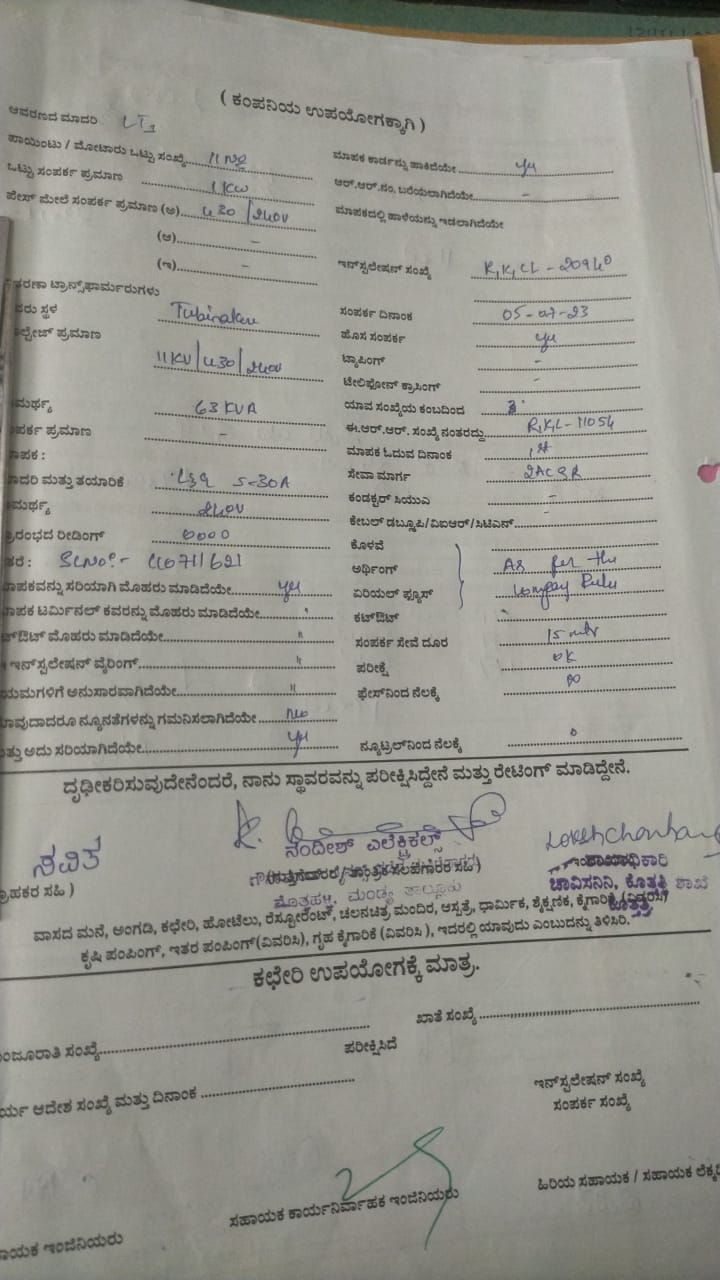 ( ಕಂಪನಿಯ ಉಪಯೋಗಕ್ಕಾಗಿ )
ಆವರಣದ ಮಾದರಿ LT3
ಪಾಯಿಂಟು / ಮೋಟಾರು ಒಟ್ಟು ಸಂಖ್ಯೆ 11 No
ಮಾಪಕ ಕಾರ್ಡನ್ನು ಹಾಕಿದೆಯೇ yes
ಒಟ್ಟು ಸಂಪರ್ಕ ಪ್ರಮಾಣ 1 KW
ಆರ್.ಆರ್.ನಂ. ಬರೆಯಲಾಗಿದೆಯೇ -
ಪೇಸ್ ಮೇಲೆ ಸಂಪರ್ಕ ಪ್ರಮಾಣ (ಅ) 430 / 240V
ಮಾಪಕದಲ್ಲಿ ಹಾಳೆಯನ್ನು ಇಡಲಾಗಿದೆಯೇ
(ಆ) -
(ಇ) -
ಇನ್‌ಸ್ಟಲೇಷನ್ ಸಂಖ್ಯೆ
ತರಣಾ ಟ್ರಾನ್ಸ್‌ಫಾರ್ಮರುಗಳು
ಸ್ಥಳ Tubinakere
ಸಂಪರ್ಕ ದಿನಾಂಕ 05-07-23
ಪ್ರಮಾಣ 11KV/430/240V
ಹೊಸ ಸಂಪರ್ಕ yes
ಟ್ಯಾಪಿಂಗ್ -
ಟೆಲಿಫೋನ್ ಕ್ರಾಸಿಂಗ್ -
ಮರ್ಥ್ಯ 63 KVA
ಯಾವ ಸಂಖ್ಯೆಯ ಕಂಬದಿಂದ 3
ಪರ್ಕ ಪ್ರಮಾಣ -
ಈ.ಆರ್.ಆರ್. ಸಂಖ್ಯೆ ನಂತರದ್ದು R,K,L-11054
ಾಪಕ :
ಮಾಪಕ ಓದುವ ದಿನಾಂಕ 1st
ಾದರಿ ಮತ್ತು ತಯಾರಿಕೆ L&G 5-30A
ಸೇವಾ ಮಾರ್ಗ 2ACSR
ಮರ್ಥ್ಯ 240V
ಕಂಡಕ್ಟರ್ ಸಿಯುಎ -
ರಂಭದ ರೀಡಿಂಗ್ 0000
ಕೇಬಲ್ ಡಬ್ಲ್ಯೂಪಿ/ವಿಐಆರ್/ಸಿಟಿಎಸ್ -
ಕೊಳವೆ
ಅರ್ಥಿಂಗ್ As per the
ಏರಿಯಲ್ ಫ್ಯೂಸ್ Company Rules
ಾಪಕವನ್ನು ಸರಿಯಾಗಿ ಮೊಹರು ಮಾಡಿದೆಯೇ yes
ಾಪಕ ಟರ್ಮಿನಲ್ ಕವರನ್ನು ಮೊಹರು ಮಾಡಿದೆಯೇ "
ಕಟ್‌ಔಟ್
ಟ್‌ಔಟ್ ಮೊಹರು ಮಾಡಿದೆಯೇ "
ಸಂಪರ್ಕ ಸೇವೆ ದೂರ 15 mtr
ಇನ್‌ಸ್ಟಲೇಷನ್ ವೈರಿಂಗ್ "
ಪರೀಕ್ಷೆ OK
ಯಮಗಳಿಗೆ ಅನುಸಾರವಾಗಿದೆಯೇ "
ಫೇಸ್‌ನಿಂದ ನೆಲಕ್ಕೆ
ಾವುದಾದರೂ ನ್ಯೂನತೆಗಳನ್ನು ಗಮನಿಸಲಾಗಿದೆಯೇ No
ತ್ತು ಅದು ಸರಿಯಾಗಿದೆಯೇ yes
ನ್ಯೂಟ್ರಲ್‌ನಿಂದ ನೆಲಕ್ಕೆ 0
ದೃಢೀಕರಿಸುವುದೇನೆಂದರೆ, ನಾನು ಸ್ಥಾವರವನ್ನು ಪರೀಕ್ಷಿಸಿದ್ದೇನೆ ಮತ್ತು ರೇಟಿಂಗ್ ಮಾಡಿದ್ದೇನೆ.
ಸವಿತ
ನಂದೀಶ್ ಎಲೆಕ್ಟ್ರಿಕಲ್ಸ್
ರಾಹಕರ ಸಹಿ )
ಮಂಡ್ಯ ತಾಲ್ಲೂಕು
ಚಾವಿಸನಿನಿ, ಕೊತ್ತತ್ತಿ ಶಾಖೆ
ಕೊತ್ತತ್ತಿ
ವಾಸದ ಮನೆ, ಅಂಗಡಿ, ಕಛೇರಿ, ಹೋಟೆಲು, ರೆಸ್ಟೋರೆಂಟ್, ಚಲನಚಿತ್ರ ಮಂದಿರ, ಆಸ್ಪತ್ರೆ, ಧಾರ್ಮಿಕ, ಶೈಕ್ಷಣಿಕ, ಕೈಗಾರಿಕೆ (ವಿವರಿಸಿ)
ಕೃಷಿ ಪಂಪಿಂಗ್, ಇತರ ಪಂಪಿಂಗ್(ವಿವರಿಸಿ), ಗೃಹ ಕೈಗಾರಿಕೆ (ವಿವರಿಸಿ ), ಇದರಲ್ಲಿ ಯಾವುದು ಎಂಬುದನ್ನು ತಿಳಿಸಿರಿ.
ಕಛೇರಿ ಉಪಯೋಗಕ್ಕೆ ಮಾತ್ರ.
ಂಜೂರಾತಿ ಸಂಖ್ಯೆ
ಖಾತೆ ಸಂಖ್ಯೆ
ಪರೀಕ್ಷಿಸಿದೆ
ರ್ಯ ಆದೇಶ ಸಂಖ್ಯೆ ಮತ್ತು ದಿನಾಂಕ
ಇನ್‌ಸ್ಟಲೇಷನ್ ಸಂಖ್ಯೆ
ಸಂಪರ್ಕ ಸಂಖ್ಯೆ
ಾಯಕ ಇಂಜಿನಿಯರು
ಸಹಾಯಕ ಕಾರ್ಯನಿರ್ವಾಹಕ ಇಂಜಿನಿಯರು
ಹಿರಿಯ ಸಹಾಯಕ / ಸಹಾಯಕ